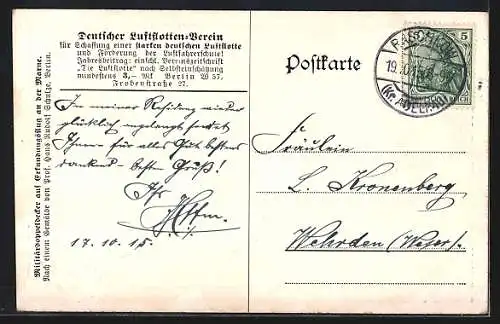 Deutscher Luftflotten-Verein
für Schaffung einer starken deutschen Luftflotte
und Förderung der Luftfahrerschule!
Jahresbeitrag: einschl. Vereinszeitschrift
„Die Luftflotte“ nach Selbsteinschätzung
mindestens 3,— Mk. Berlin W 57,
Frobenstraße 27.
Militärdoppeldecker auf Erkundungsflug an der Marne.
Nach einem Gemälde von Prof. Hans Rudolf Schulze, Berlin.
Postkarte
5
19.10.15
In meiner Residenz wieder
glücklich angelangt sendet
Ihnen für alles Gute bestens
dankend - besten Gruß!
Ihr
17.10.15.
Fräulein
L. Kronenberg
Wehrden (Weser).